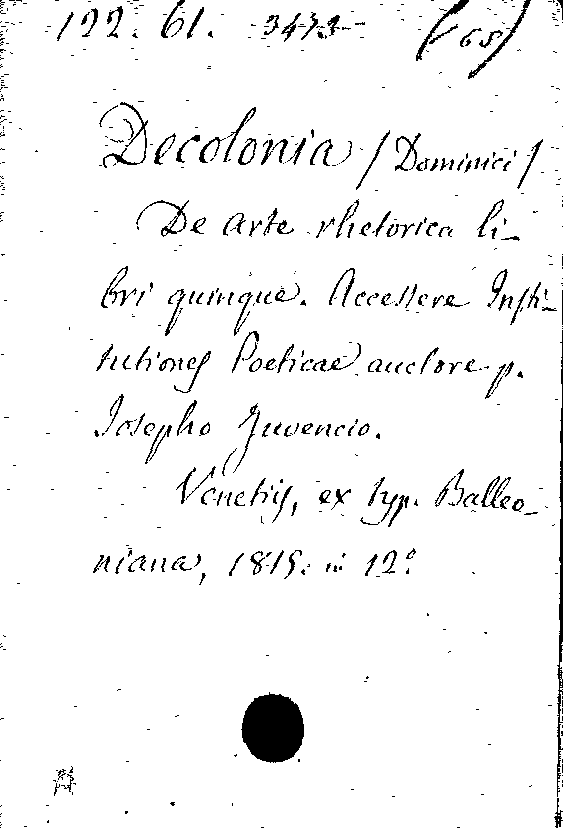 122. 61. 3473 (65)
Decolonia / Dominici /
De arte rhetorica li-
bri quinque. Accessere Insti-
tutiones Poeticae auctore p.
Josepho Juvencio.
Venetiis, ex typ. Balleo-
niana, 1815. in 12°.